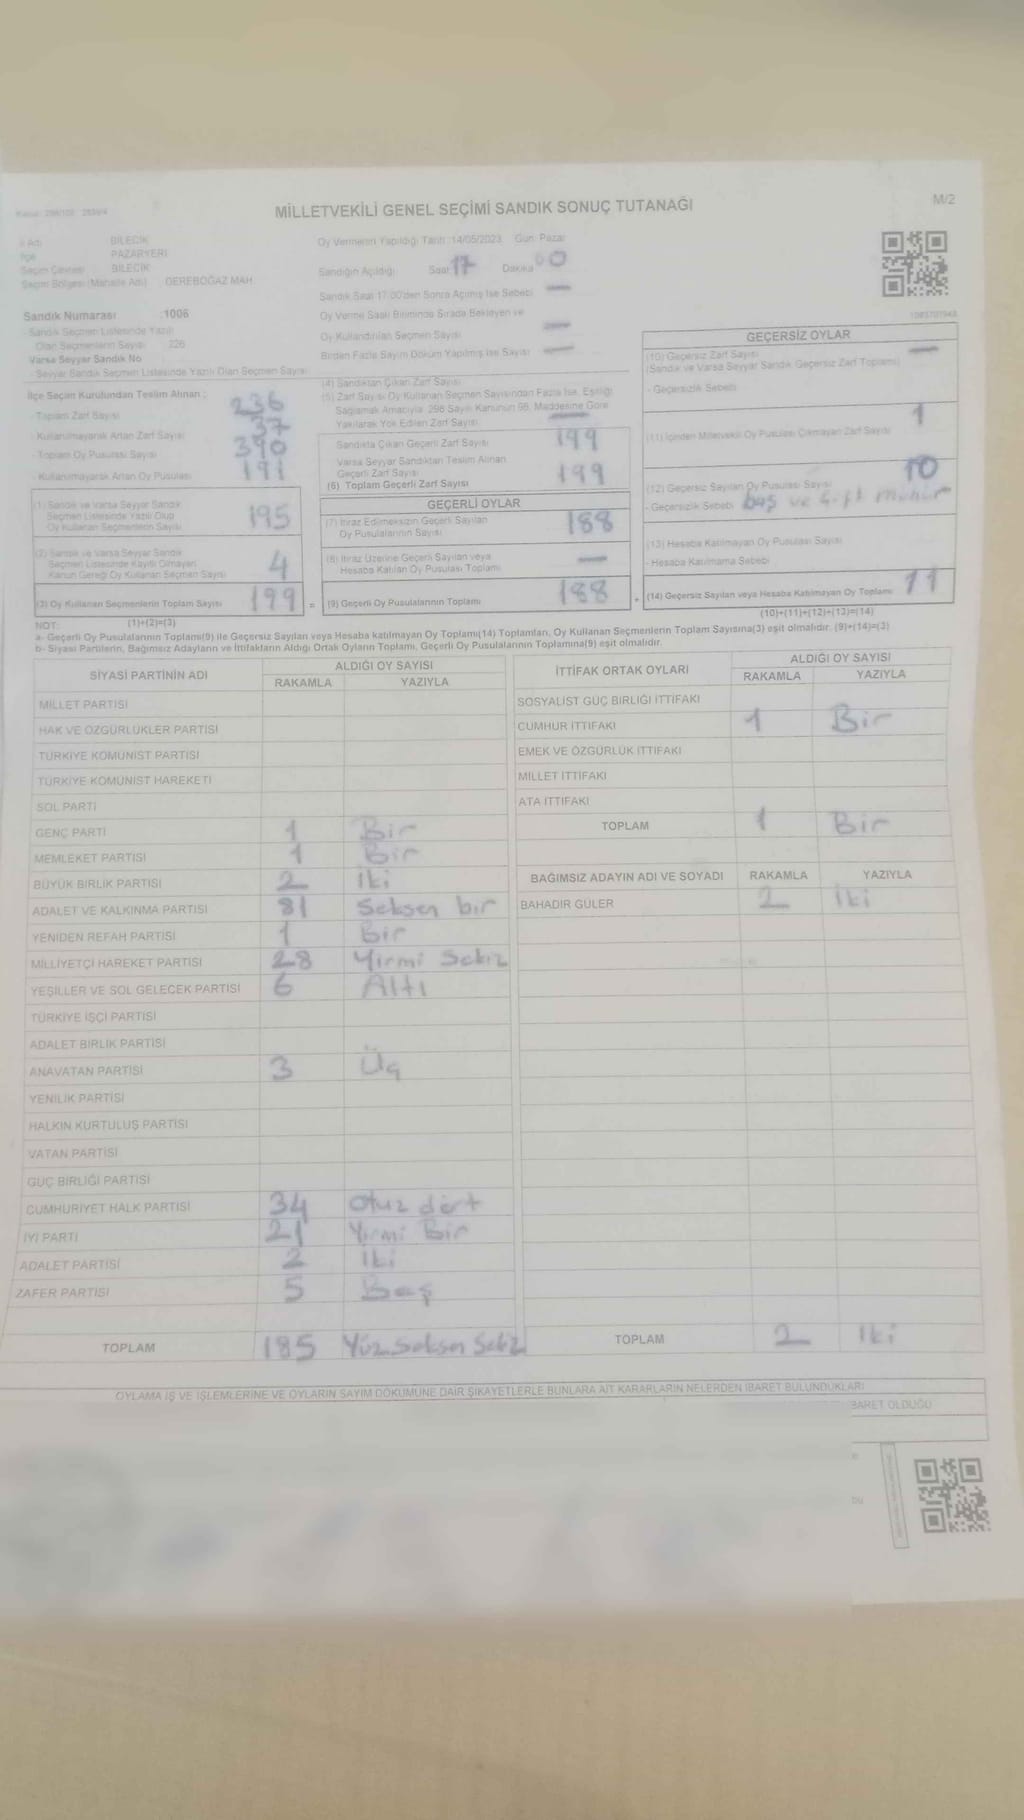 MİLLETVEKİLİ GENEL SEÇİMİ SANDIK SONUÇ TUTANAĞI
M/2
İl Adı BİLECİK
İlçe PAZARYERİ
Seçim Çevresi BİLECİK
Seçim Bölgesi (Mahalle Adı) DEREBOĞAZ MAH.
Oy Vermenin Yapıldığı Tarih: 14/05/2023 Gün: Pazar
Sandığın Açıldığı Saat 17 Dakika 00
Sandık Saat 17.00'den Sonra Açılmış İse Sebebi —
Oy Verme Saati Bitiminde Sırada Bekleyen ve
Oy Kullandırılan Seçmen Sayısı —
Birden Fazla Sayım Döküm Yapılmış İse Sayısı —
Sandık Numarası :1006
- Sandık Seçmen Listesinde Yazılı
Olan Seçmenlerin Sayısı 226
Varsa Seyyar Sandık No
- Seyyar Sandık Seçmen Listesinde Yazılı Olan Seçmen Sayısı
İlçe Seçim Kurulundan Teslim Alınan :
- Toplam Zarf Sayısı 236
- Kullanılmayarak Artan Zarf Sayısı 37
- Toplam Oy Pusulası Sayısı 390
- Kullanılmayarak Artan Oy Pusulası 191
(1) Sandık ve Varsa Seyyar Sandık
Seçmen Listesinde Yazılı Olup
Oy Kullanan Seçmenlerin Sayısı 195
(2) Sandık ve Varsa Seyyar Sandık
Seçmen Listesinde Kayıtlı Olmayan
Kanun Gereği Oy Kullanan Seçmen Sayısı 4
(3) Oy Kullanan Seçmenlerin Toplam Sayısı 199 =
(4) Sandıktan Çıkan Zarf Sayısı
(5) Zarf Sayısı Oy Kullanan Seçmen Sayısından Fazla İse, Eşitliği
Sağlamak Amacıyla 298 Sayılı Kanunun 98. Maddesine Göre
Yakılarak Yok Edilen Zarf Sayısı —
Sandıkta Çıkan Geçerli Zarf Sayısı 199
Varsa Seyyar Sandıktan Teslim Alınan
Geçerli Zarf Sayısı
(6) Toplam Geçerli Zarf Sayısı 199
GEÇERLİ OYLAR
(7) İtiraz Edilmeksizin Geçerli Sayılan
Oy Pusulalarının Sayısı 188
(8) İtiraz Üzerine Geçerli Sayılan veya
Hesaba Katılan Oy Pusulası Toplamı —
(9) Geçerli Oy Pusulalarının Toplamı 188 +
GEÇERSİZ OYLAR
(10) Geçersiz Zarf Sayısı —
(Sandık ve Varsa Seyyar Sandık Geçersiz Zarf Toplamı)
- Geçersizlik Sebebi
(11) İçinden Milletvekili Oy Pusulası Çıkmayan Zarf Sayısı 1
(12) Geçersiz Sayılan Oy Pusulası Sayısı 10
- Geçersizlik Sebebi boş ve çift mühür
(13) Hesaba Katılmayan Oy Pusulası Sayısı
- Hesaba Katılmama Sebebi
(14) Geçersiz Sayılan veya Hesaba Katılmayan Oy Toplamı 11
NOT: (1)+(2)=(3)
(10)+(11)+(12)+(13)=(14)
a- Geçerli Oy Pusulalarının Toplamı(9) ile Geçersiz Sayılan veya Hesaba katılmayan Oy Toplamı(14) Toplamları, Oy Kullanan Seçmenlerin Toplam Sayısına(3) eşit olmalıdır. (9)+(14)=(3)
b- Siyasi Partilerin, Bağımsız Adayların ve İttifakların Aldığı Ortak Oyların Toplamı, Geçerli Oy Pusulalarının Toplamına(9) eşit olmalıdır.
SİYASİ PARTİNİN ADI ALDIĞI OY SAYISI
RAKAMLA YAZIYLA
MİLLET PARTİSİ
HAK VE ÖZGÜRLÜKLER PARTİSİ
TÜRKİYE KOMÜNİST PARTİSİ
TÜRKİYE KOMÜNİST HAREKETİ
SOL PARTİ
GENÇ PARTİ 1 Bir
MEMLEKET PARTİSİ 1 Bir
BÜYÜK BİRLİK PARTİSİ 2 İki
ADALET VE KALKINMA PARTİSİ 81 Seksen bir
YENİDEN REFAH PARTİSİ 1 Bir
MİLLİYETÇİ HAREKET PARTİSİ 28 Yirmi Sekiz
YEŞİLLER VE SOL GELECEK PARTİSİ 6 Altı
TÜRKİYE İŞÇİ PARTİSİ
ADALET BİRLİK PARTİSİ
ANAVATAN PARTİSİ 3 Üç
YENİLİK PARTİSİ
HALKIN KURTULUŞ PARTİSİ
VATAN PARTİSİ
GÜÇ BİRLİĞİ PARTİSİ
CUMHURİYET HALK PARTİSİ 34 otuz dört
İYİ PARTİ 21 Yirmi Bir
ADALET PARTİSİ 2 İki
ZAFER PARTİSİ 5 Beş
TOPLAM 185 Yüz Seksen Sekiz
İTTİFAK ORTAK OYLARI ALDIĞI OY SAYISI
RAKAMLA YAZIYLA
SOSYALİST GÜÇ BİRLİĞİ İTTİFAKI
CUMHUR İTTİFAKI 1 Bir
EMEK VE ÖZGÜRLÜK İTTİFAKI
MİLLET İTTİFAKI
ATA İTTİFAKI
TOPLAM 1 Bir
BAĞIMSIZ ADAYIN ADI VE SOYADI RAKAMLA YAZIYLA
BAHADIR GÜLER 2 İki
TOPLAM 2 İki
OYLAMA İŞ VE İŞLEMLERİNE VE OYLARIN SAYIM DÖKÜMÜNE DAİR ŞİKAYETLERLE BUNLARA AİT KARARLARIN NELERDEN İBARET BULUNDUKLARI
BARET OLDUĞU